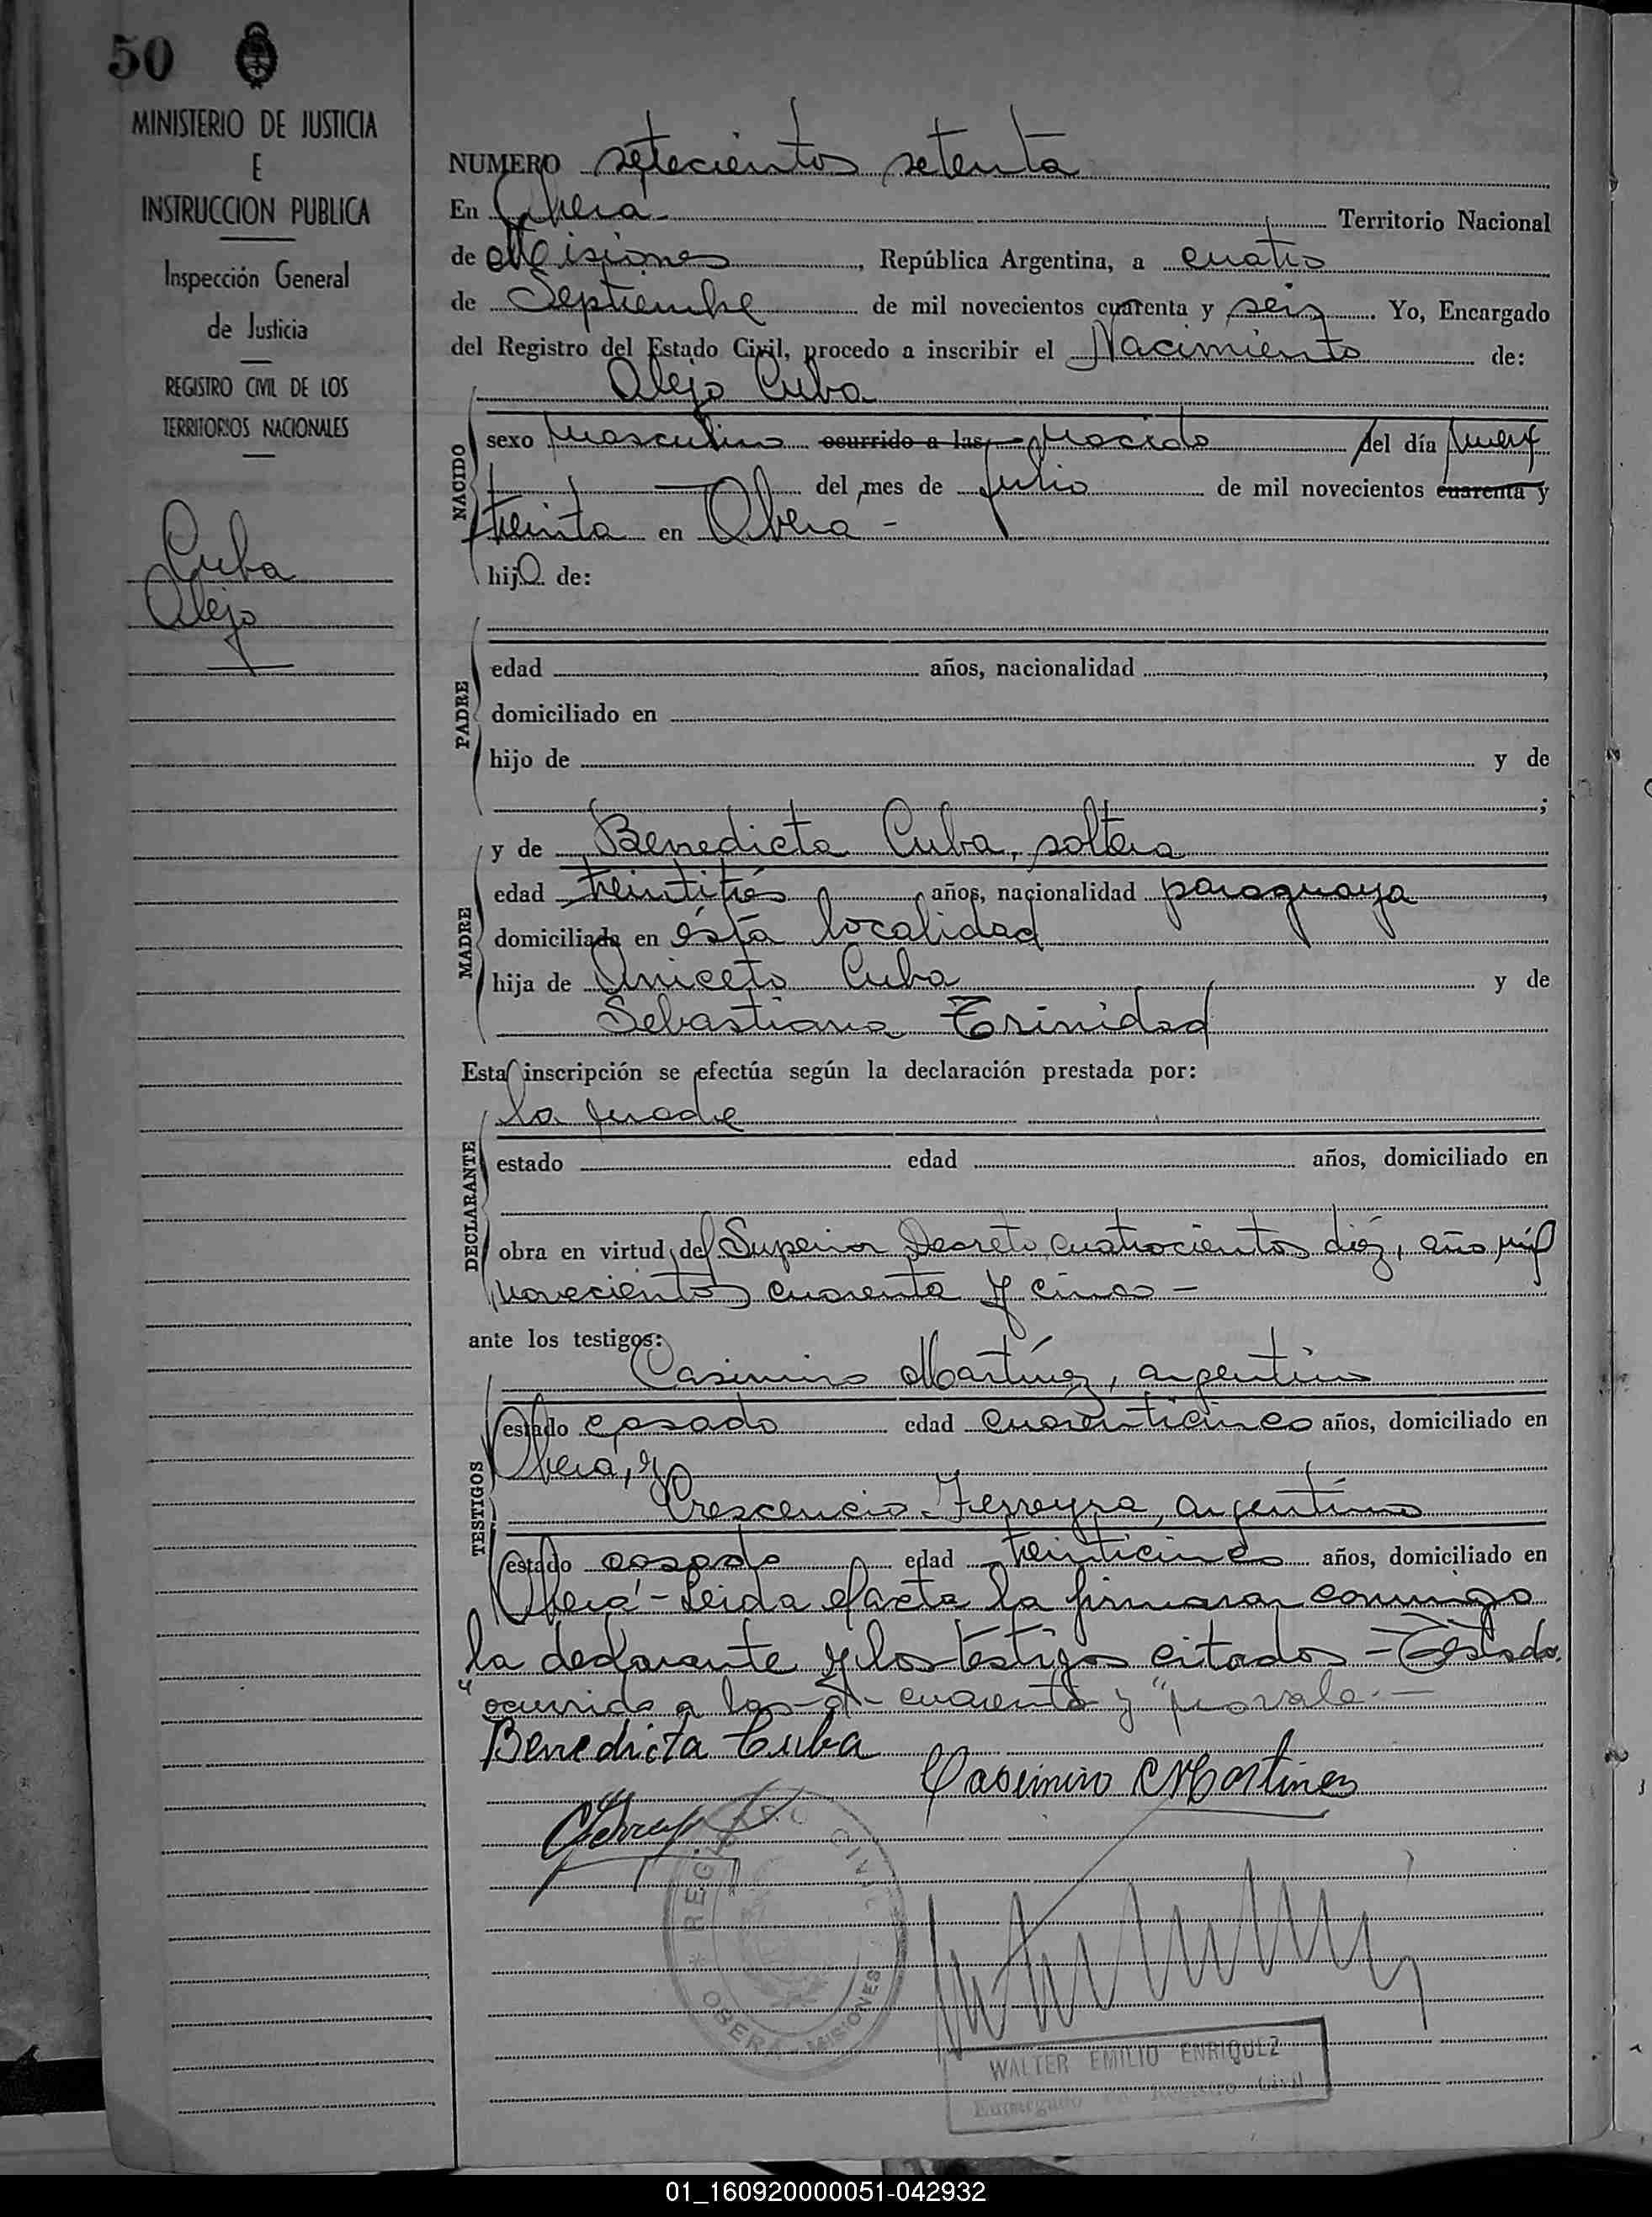 50
MINISTERIO DE JUSTICIA
E
INSTRUCCION PUBLICA
Inspección General
de Justicia
REGISTRO CIVIL DE LOS
TERRITORIOS NACIONALES
Cuba
Alejo
NUMERO setecientos setenta
En Oberá- Territorio Nacional
de Misiones, República Argentina, a cuatro
de Septiembre de mil novecientos cuarenta y seis. Yo, Encargado
del Registro del Estado Civil, procedo a inscribir el Nacimiento de:
Alejo Cuba
NACIDO
sexo Masculino ocurrido a las Nacido del día
del mes de Julio de mil novecientos cuarenta y
treinta en Oberá -
hijo de:
PADRE
edad años, nacionalidad ,
domiciliado en
hijo de y de
;
MADRE
y de Benedicta Cuba, soltera
edad treintitrés años, nacionalidad paraguaya,
domiciliada en ésta localidad
hija de Aniceto Cuba y de
Sebastiana Trinidad
Esta inscripción se efectúa según la declaración prestada por:
DECLARANTE
la madre
estado edad años, domiciliado en
obra en virtud del Superior Decreto cuatrocientos diéz, año mil
novecientos cuarenta y cinco -
ante los testigos:
TESTIGOS
Casimiro Martínez, argentino
estado casado edad cuarenticinco años, domiciliado en
Oberá, y
Crescencio Ferreyra, argentino
estado casado edad treinticinco años, domiciliado en
Oberá - Leida el acta la firmaron conmigo
la declarante y los testigos citados - Testado:
"ocurrido a las - cuarenta y" no vale. -
Benedicta Cuba
Casimiro Martinez
REGISTRO CIVIL
OBERA - MISIONES
WALTER EMILIO ENRIQUEZ
Encargado del Registro Civil
01_160920000051-042932